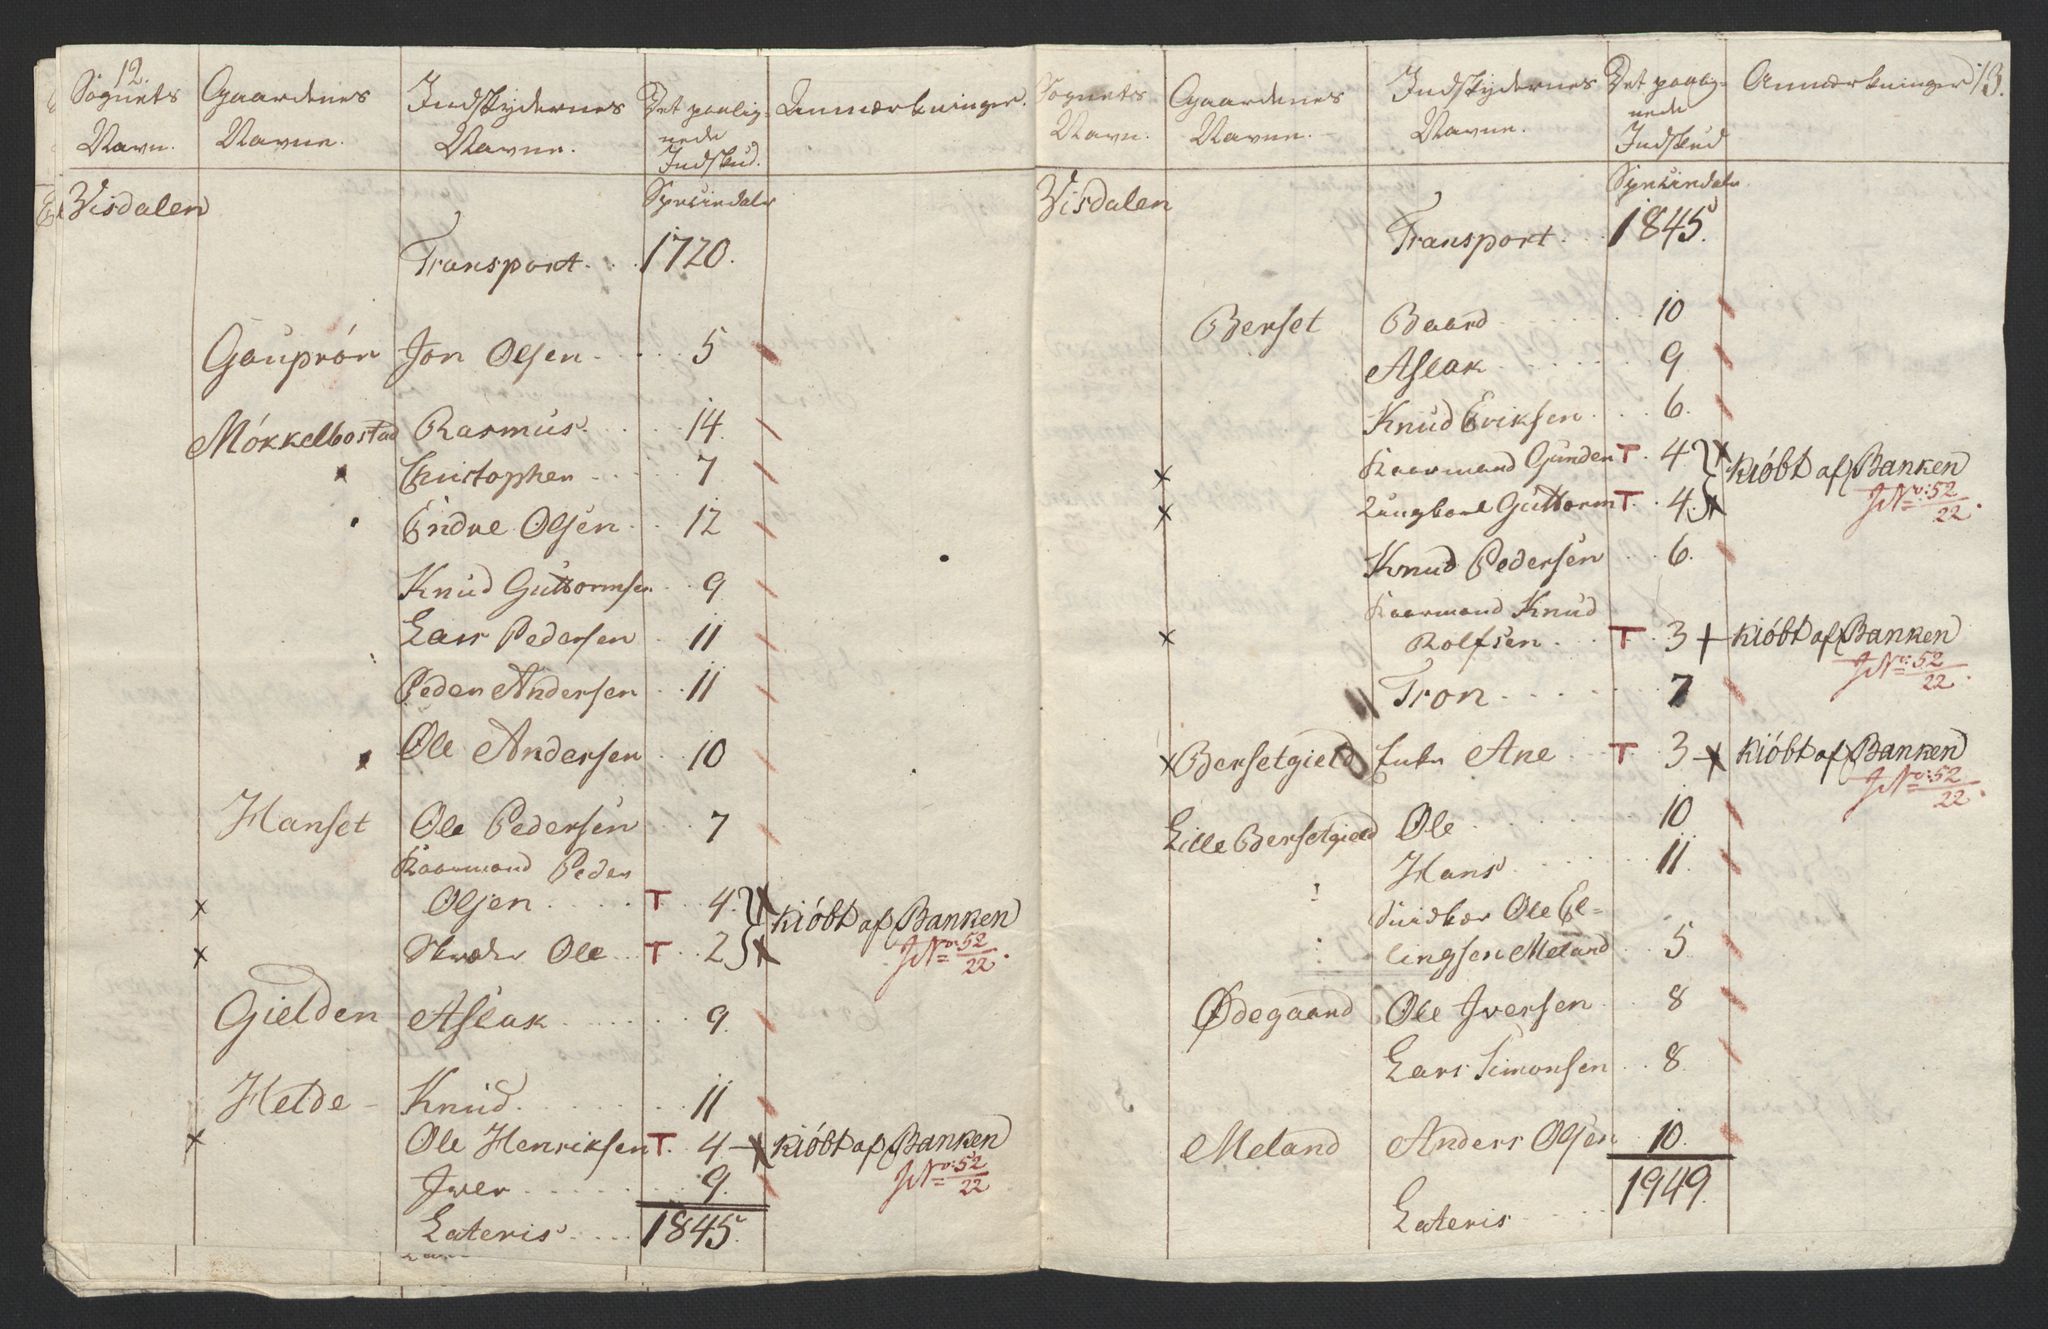 12.
Sognets Navn. Gaardenes Navne. Indskydernes Navne. Det paalignede Indskud. Anmærkninger.
Visdalen Speciesdaler
Transport 1720.
Gauprör Jon Olsen 5
Mökkelbostad Rasmus 14
Christopher 7
Endre Olsen 12
Knud Guttormsen 9
Lars Pedersen 11
Peder Andersen 11
Ole Andersen 10
Hanset Ole Pedersen 7
Kaarmand Peder
x Olsen T 4 Kiöbt af Banken
x Skræder Ole T 2 J No: 52/22.
Gielden Aslak 9
Helde Knud 11
x Ole Henriksen T. 4 x Kiöbt af Banken
Iver 9. J No: 52/22
Lateris 1845.
13.
Sognets Navn. Gaardenes Navne. Indskydernes Navne. Det paalignede Indskud Anmærkninger
Visdalen Speciesdaler
Transport 1845.
Berset Baard 10
Aslak 9
Knud Eriksen 6.
x Kaarmand Gunder T. 4 x Kiöbt af Banken
x Guttorm T. 4. x J No: 52/22.
Knud Pedersen 6.
Kaarmand Knud
x Rolfsen T 3 + Kiöbt af Banken
J No: 52/22.
Tron 7
x Bersetgield Enke Ane T 3 x Kiöbt af Banken
J No: 52/22.
Lille Bersetgield Ole 10
Hans 11
Ole El=
lingsen Meland 5
Ødegaard Ole Iversen 8
Lars Simonsen 8.
Meland Anders Olsen 10.
Lateris 1949.